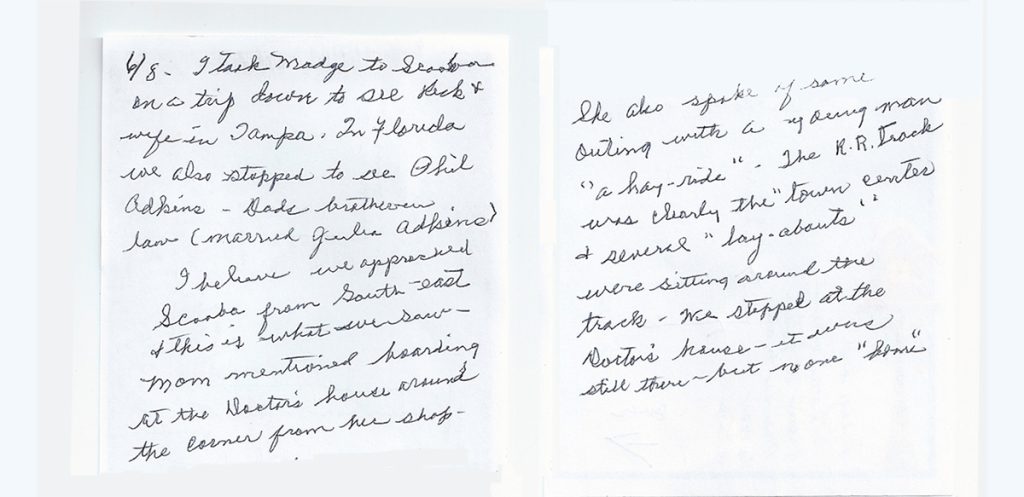 6/8 - I took Madge to Scooba
on a trip down to see Dick &
wife in Tampa. In Florida
we also stopped to see Phil
Adkins - Dads brother in
law (married Julia Adkins)
I believe we approached
Scooba from South-east
& this is what we saw -
Mom mentioned boarding
at the Doctor's house around
the corner from her shop -
She also spoke of some
outing with a young man
"a hay-ride" - The R.R. Track
was clearly the "town center"
& several "lay-abouts"
were sitting around the
track - We stopped at the
Doctor's house - it was
still there - but no one "home"